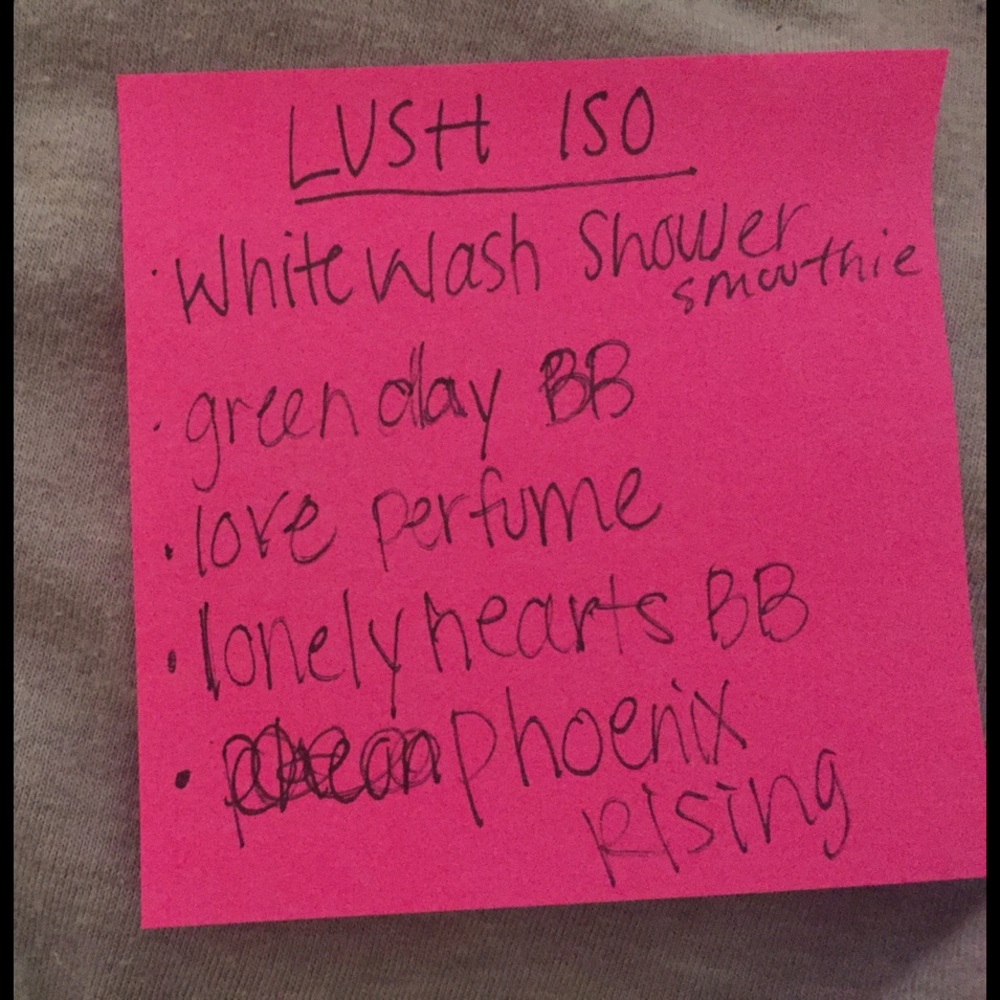 LUSH ISO
· White Wash Shower
smoothie
· green day BB
· love perfume
· lonely hearts BB
· phoenix
Rising